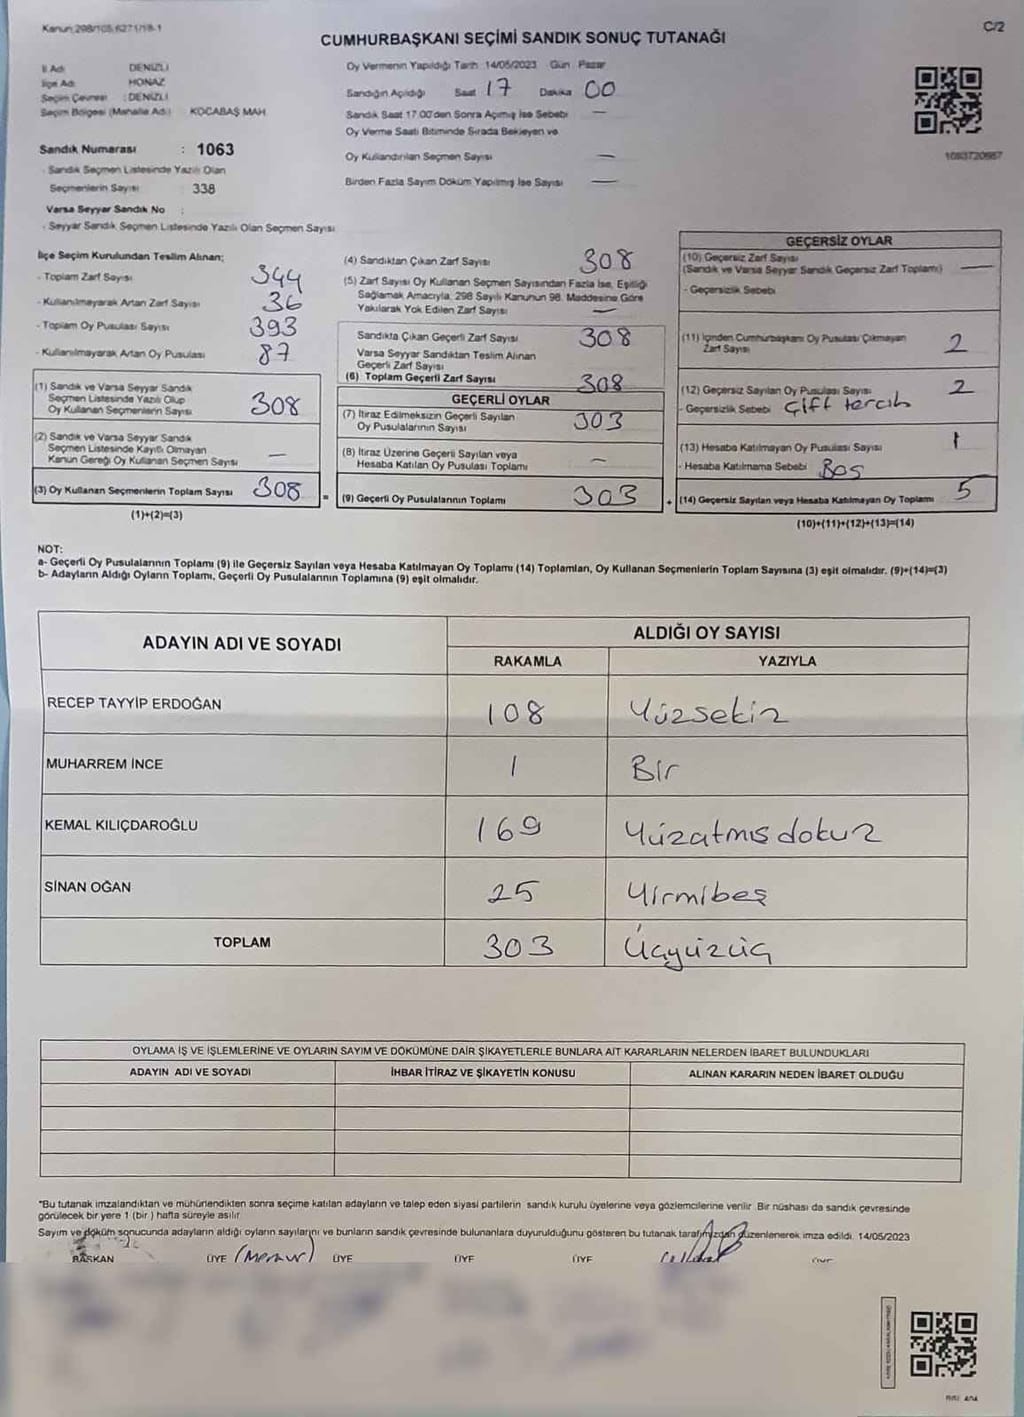 Kanun:298/105,6271/18-1
C/2
CUMHURBAŞKANI SEÇİMİ SANDIK SONUÇ TUTANAĞI
İl Adı : DENİZLİ
İlçe Adı : HONAZ
Seçim Çevresi : DENİZLİ
Seçim Bölgesi (Mahalle Adı) : KOCABAŞ MAH.
Sandık Numarası : 1063
- Sandık Seçmen Listesinde Yazılı Olan
Seçmenlerin Sayısı : 338
Varsa Seyyar Sandık No :
- Seyyar Sandık Seçmen Listesinde Yazılı Olan Seçmen Sayısı
Oy Vermenin Yapıldığı Tarih :14/05/2023 Gün : Pazar
Sandığın Açıldığı Saat 17 Dakika 00
Sandık Saat 17:00'den Sonra Açılmış İse Sebebi —
Oy Verme Saati Bitiminde Sırada Bekleyen ve
Oy Kullandırılan Seçmen Sayısı —
Birden Fazla Sayım Döküm Yapılmış İse Sayısı —
1093720987
İlçe Seçim Kurulundan Teslim Alınan;
- Toplam Zarf Sayısı 344
- Kullanılmayarak Artan Zarf Sayısı 36
- Toplam Oy Pusulası Sayısı 393
- Kullanılmayarak Artan Oy Pusulası 87
(1) Sandık ve Varsa Seyyar Sandık
Seçmen Listesinde Yazılı Olup
Oy Kullanan Seçmenlerin Sayısı 308
(2) Sandık ve Varsa Seyyar Sandık
Seçmen Listesinde Kayıtlı Olmayan
Kanun Gereği Oy Kullanan Seçmen Sayısı —
(3) Oy Kullanan Seçmenlerin Toplam Sayısı 308
(1)+(2)=(3)
(4) Sandıktan Çıkan Zarf Sayısı 308
(5) Zarf Sayısı Oy Kullanan Seçmen Sayısından Fazla İse, Eşitliği
Sağlamak Amacıyla, 298 Sayılı Kanunun 98. Maddesine Göre
Yakılarak Yok Edilen Zarf Sayısı —
Sandıkta Çıkan Geçerli Zarf Sayısı 308
Varsa Seyyar Sandıktan Teslim Alınan
Geçerli Zarf Sayısı
(6) Toplam Geçerli Zarf Sayısı 308
GEÇERLİ OYLAR
(7) İtiraz Edilmeksizin Geçerli Sayılan
Oy Pusulalarının Sayısı 303
(8) İtiraz Üzerine Geçerli Sayılan veya
Hesaba Katılan Oy Pusulası Toplamı —
= (9) Geçerli Oy Pusulalarının Toplamı 303
GEÇERSİZ OYLAR
(10) Geçersiz Zarf Sayısı
(Sandık ve Varsa Seyyar Sandık Geçersiz Zarf Toplamı) —
- Geçersizlik Sebebi
(11) İçinden Cumhurbaşkanı Oy Pusulası Çıkmayan
Zarf Sayısı 2
(12) Geçersiz Sayılan Oy Pusulası Sayısı 2
- Geçersizlik Sebebi Çift tercih
(13) Hesaba Katılmayan Oy Pusulası Sayısı 1
- Hesaba Katılmama Sebebi Boş
+ (14) Geçersiz Sayılan veya Hesaba Katılmayan Oy Toplamı 5
(10)+(11)+(12)+(13)=(14)
NOT:
a- Geçerli Oy Pusulalarının Toplamı (9) ile Geçersiz Sayılan veya Hesaba Katılmayan Oy Toplamı (14) Toplamları, Oy Kullanan Seçmenlerin Toplam Sayısına (3) eşit olmalıdır. (9)+(14)=(3)
b- Adayların Aldığı Oyların Toplamı, Geçerli Oy Pusulalarının Toplamına (9) eşit olmalıdır.
ADAYIN ADI VE SOYADI
ALDIĞI OY SAYISI
RAKAMLA YAZIYLA
RECEP TAYYİP ERDOĞAN 108 Yüzsekiz
MUHARREM İNCE 1 Bir
KEMAL KILIÇDAROĞLU 169 Yüzatmışdokuz
SİNAN OĞAN 25 Yirmibeş
TOPLAM 303 Üçyüzüç
OYLAMA İŞ VE İŞLEMLERİNE VE OYLARIN SAYIM VE DÖKÜMÜNE DAİR ŞİKAYETLERLE BUNLARA AİT KARARLARIN NELERDEN İBARET BULUNDUKLARI
ADAYIN ADI VE SOYADI İHBAR İTİRAZ VE ŞİKAYETİN KONUSU ALINAN KARARIN NEDEN İBARET OLDUĞU
"Bu tutanak imzalandıktan ve mühürlendikten sonra seçime katılan adayların ve talep eden siyasi partilerin sandık kurulu üyelerine veya gözlemcilerine verilir. Bir nüshası da sandık çevresinde
görülecek bir yere 1 (bir ) hafta süreyle asılır.
Sayım ve döküm sonucunda adayların aldığı oyların sayılarını ve bunların sandık çevresinde bulunanlara duyurulduğunu gösteren bu tutanak tarafımızdan düzenlenerek imza edildi. 14/05/2023
BAŞKAN ÜYE (Memur) ÜYE ÜYE ÜYE